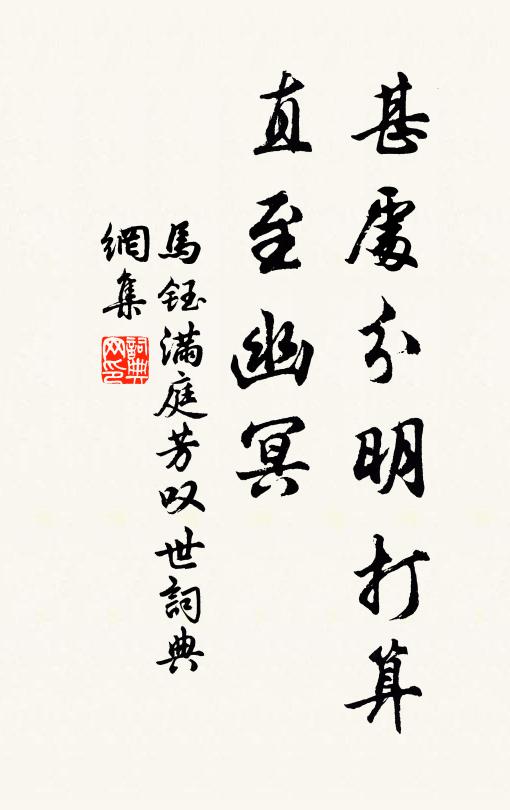 甚處分明打算
直至幽冥
馬鈺滿庭芳叹世詞典
網集
詞典網印